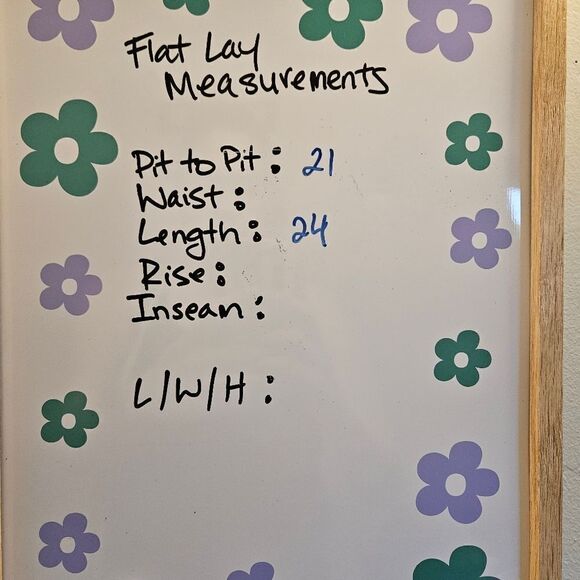 Flat Lay
Measurements
Pit to Pit: 21
Waist:
Length: 24
Rise:
Inseam:
L/W/H: